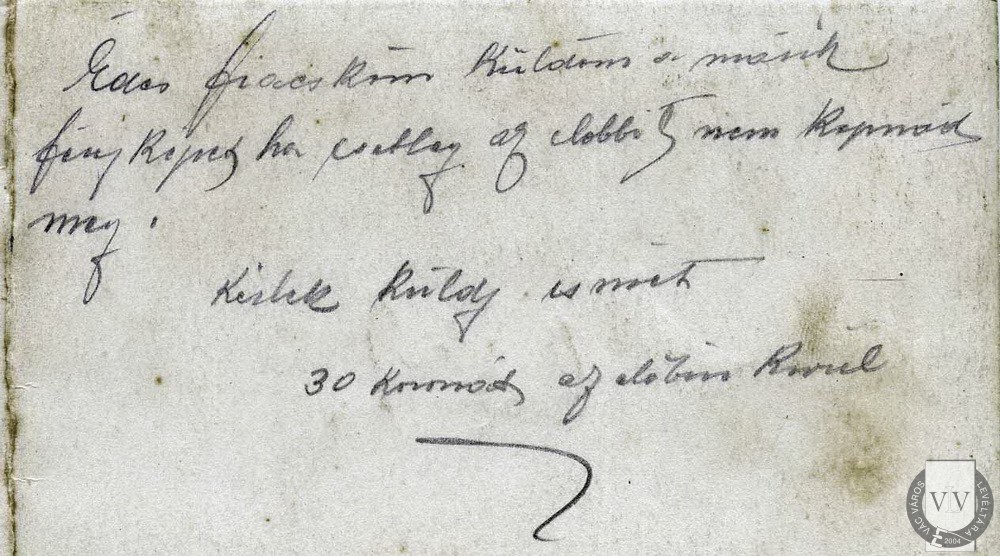 Édes fiacskám küldöm a másik
fényképet ha esetleg az elobbit nem kapnád
meg.
Kérlek küldj ismét
30 koronát az elobin kivül
VÁC VÁROS LEVÉLTÁRA
VLV
2004